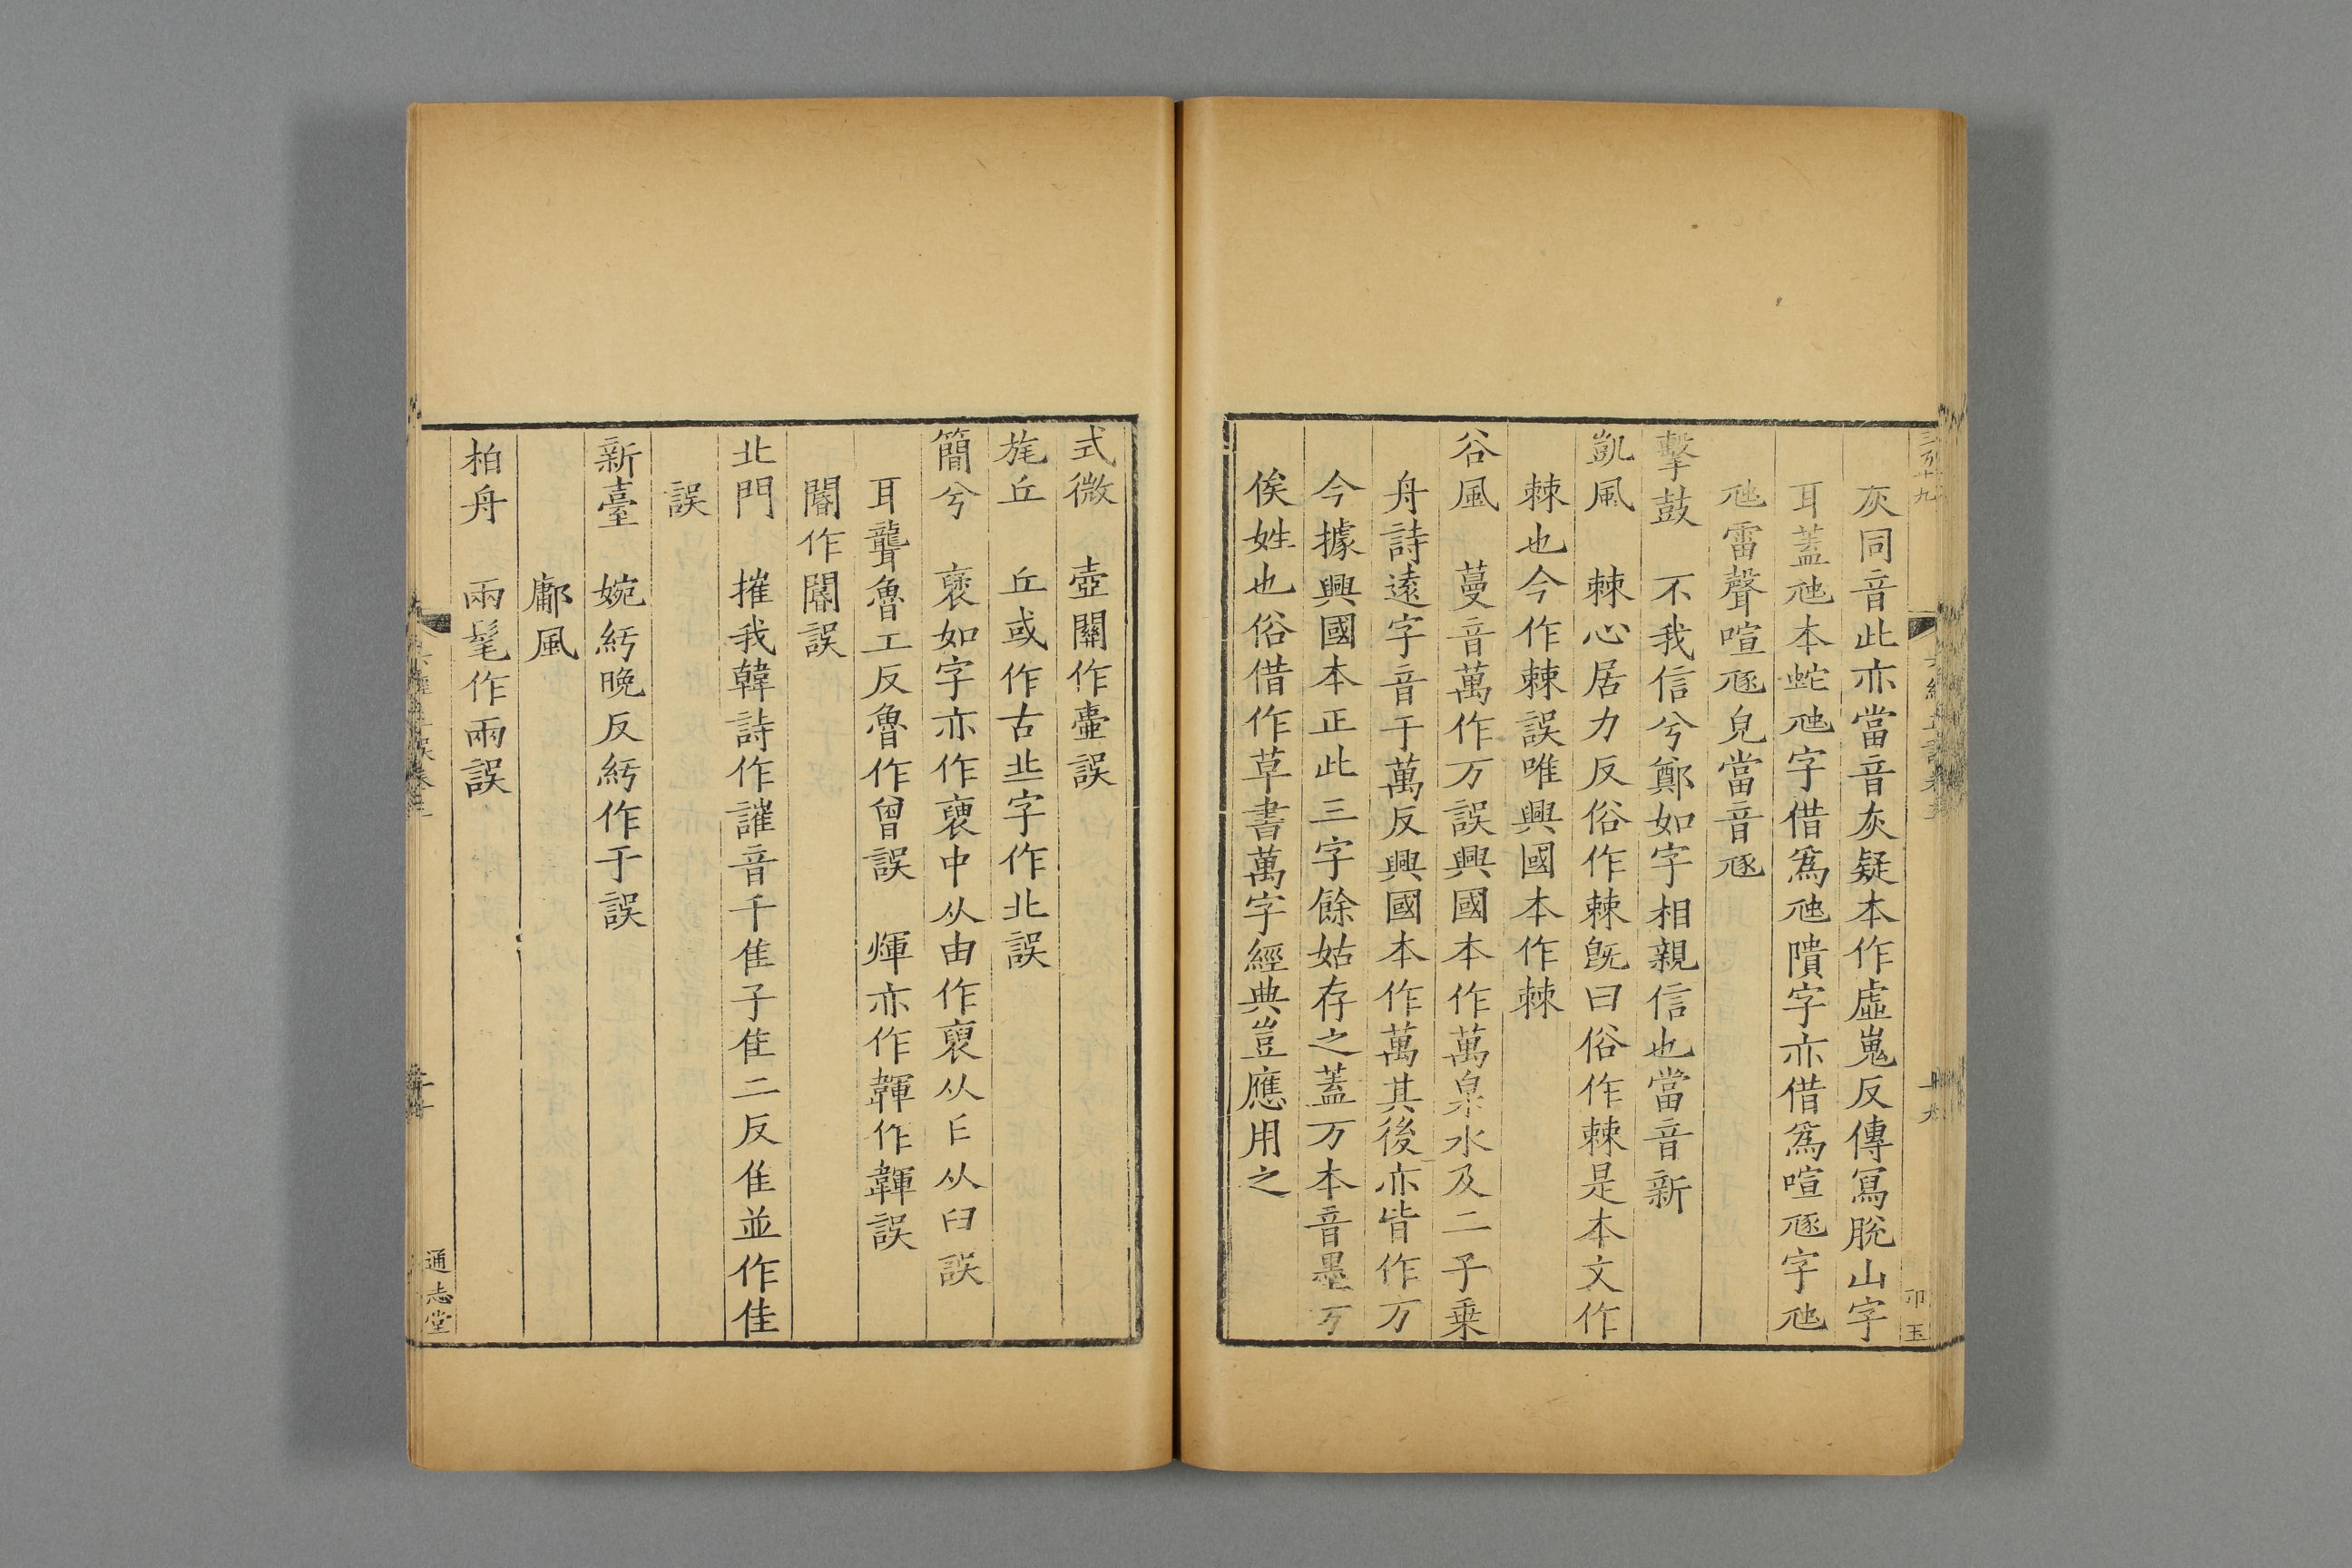 灰同音此亦當音灰疑本作虛嵬反傳寫脫山字
耳蓋虺本蛇虺字借爲虺隤字亦借爲喧豗字虺
虺雷聲喧豗皃當音豗
擊鼓　不我信兮鄭如字相親信也當音新
凱風　棘心居力反俗作棘旣曰俗作棘是本文作
棘也今作棘誤唯興國本作棘
谷風　蔓音萬作万誤興國本作萬泉水及二子乗
舟詩遠字音于萬反興國本作萬其後亦皆作万
今據興國本正此三字餘姑存之蓋万本音墨万
俟姓也俗借作草書萬字經典豈應用之
式微　壺關作壷誤
旄丘　丘或作古丠字作北誤
簡兮　褎如字亦作褏中从由作褎从𠂎从臼誤
耳聾魯工反魯作曾誤　煇亦作韗作韗誤
閽作閽誤
北門　摧我韓詩作讙音千隹子隹二反隹並作佳
誤
新臺　婉紆晚反紆作于誤
鄘風
柏舟　兩髦作兩誤
通志堂